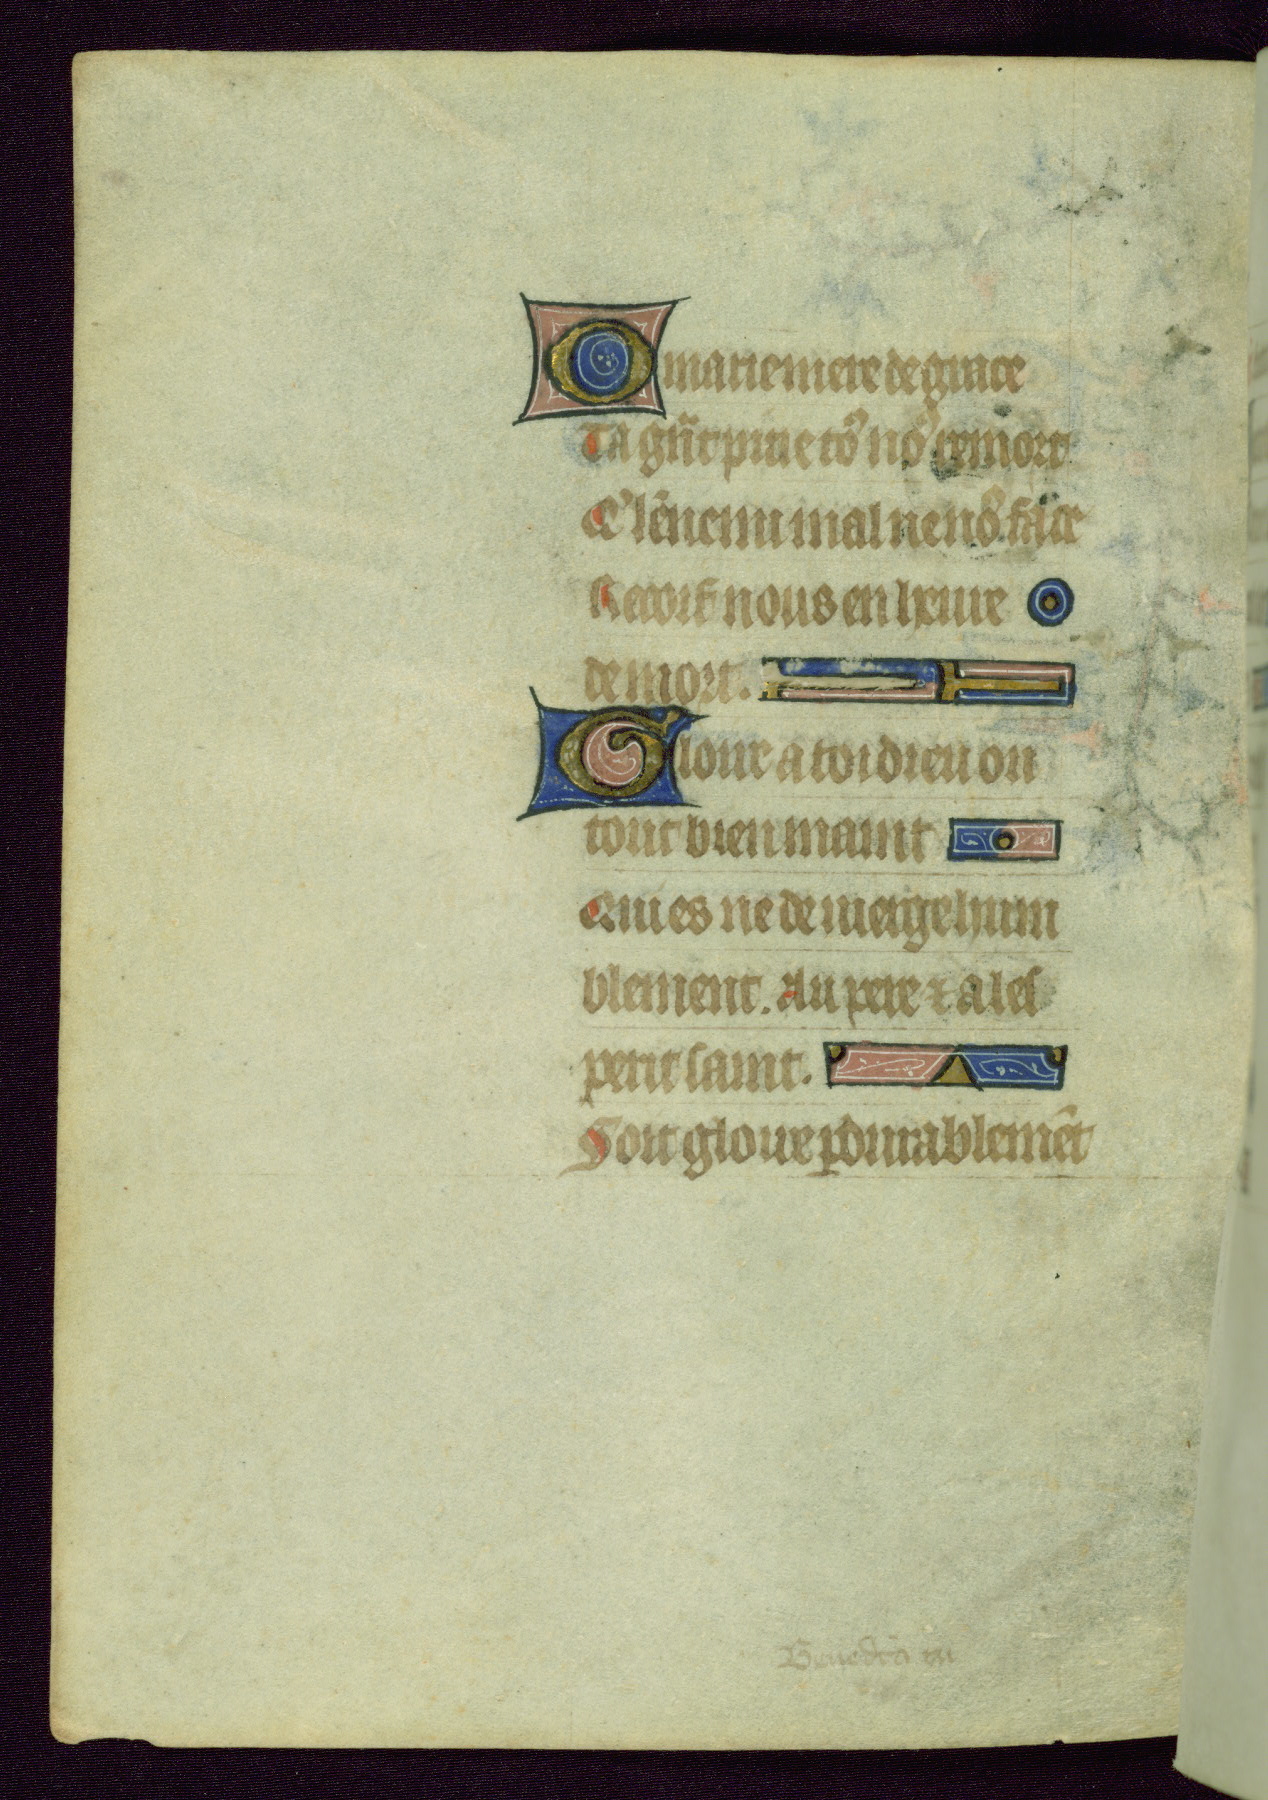 O marie mere de grace
Ta gñt pitie tõ nõ remort
Q' lẽnemi mal ne nõ face
Recoif nous en lxure
de mort.
Gloire a toi dieu ou
tout bien maint
Qui es ne de vierge hum
blement. Au pere ⁊ a les
petit saint.
Soit gloire pdurablemẽt
Benedcã